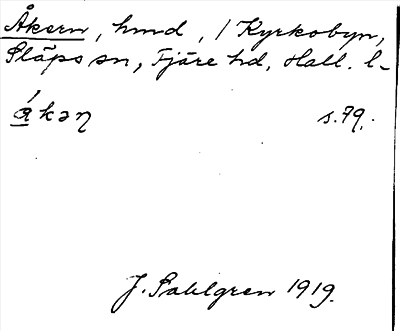 Åkern, hmd, / Kyrkobyn,
Släps sn, Fjäre hd, Hall. l-
åkəɳ s.79.
J. Sahlgren 1919.